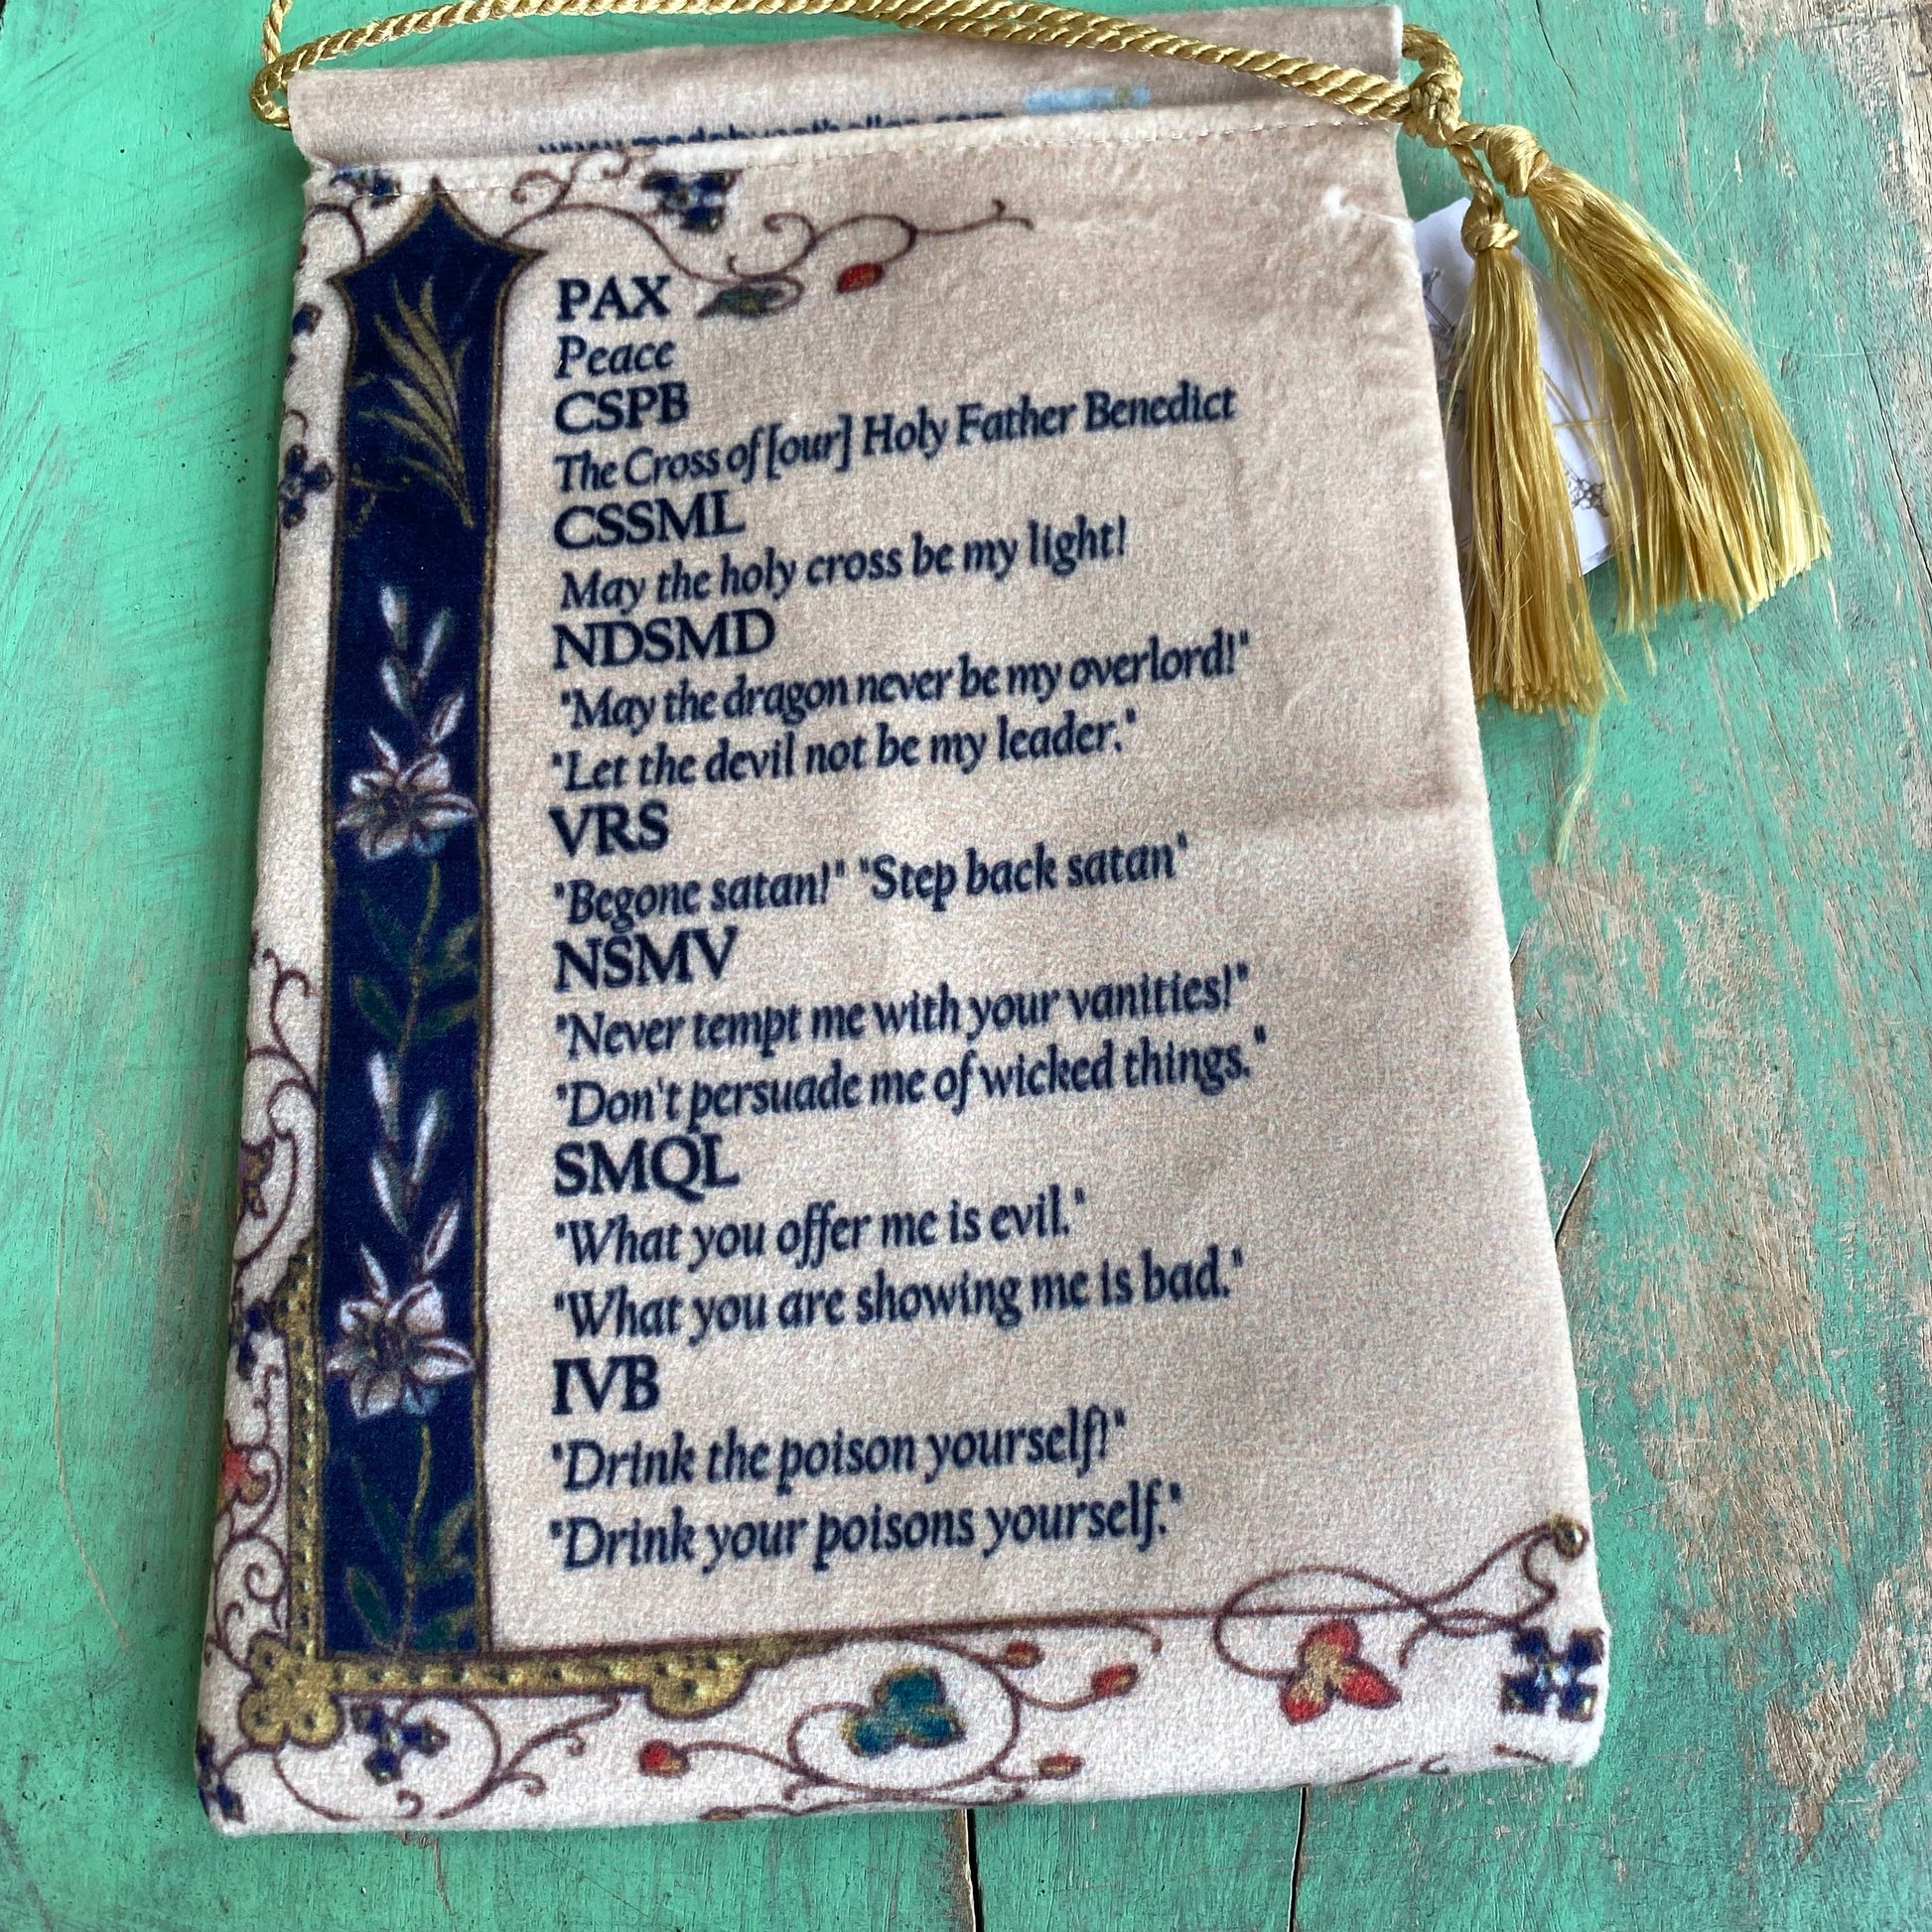 PAX
Peace
CSPB
The Cross of [our] Holy Father Benedict
CSSML
May the holy cross be my light!
NDSMD
"May the dragon never be my overlord!"
"Let the devil not be my leader."
VRS
"Begone satan!" 'Step back satan'
NSMV
"Never tempt me with your vanities!"
"Don't persuade me of wicked things."
SMQL
"What you offer me is evil."
"What you are showing me is bad."
IVB
"Drink the poison yourself!"
"Drink your poisons yourself."